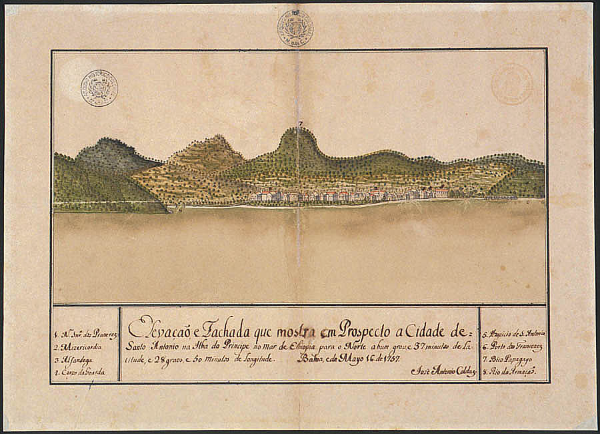 7
1. N. Snr.ª dos Prazeres
2. Mizericordia
3. Alfandega
4. Corpo da Guarda
Elevacaõ e Fachada que mostra em Prospecto a Cidade de
Santo Antonio na Ilha do Principe no Mar de Ethiopia para o Norte a hum grao e 37 minutos de La=
titude, e 28 graos, e 50 minutos de Longitude. Bahia, e de Mayo 16 de 1757.
Jozè Antonio Caldas
5. Hospicio de S. Antonio
6. Forte dos Francezes
7. Bico Papagayo
8. Rio da